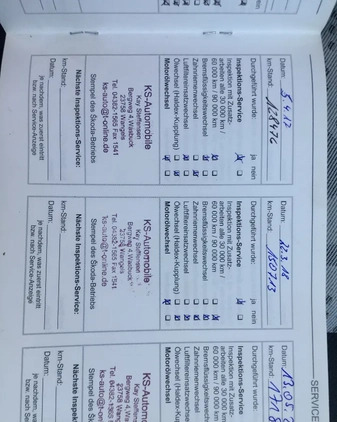 Datum: 5.4.17
km-Stand: 128476
Durchgeführt wurde: ja nein
Inspektions-Service
Inspektion mit Zusatz-
arbeiten alle 30 000 km /
60 000 km / 90 000 km
Bremsflüssigkeitswechsel
Zahnriemenwechsel
Luftfiltereinsatzwechsel
Ölwechsel (Haldex-Kupplung)
Motorölwechsel
KS-Automobile
Kay Steffensen
Bergweg 4, Waibock
23758 Wangels
Tel. 04382-1565 Fax 1541
ks-auto@t-online.de
Stempel des Škoda-Betriebs
Nächste Inspektions-Service:
km-Stand:
Datum:
je nachdem, was zuerst eintritt
bzw. nach Service-Anzeige
Datum: 22.3.18
km-Stand: 150713
Durchgeführt wurde: ja nein
Inspektions-Service
Inspektion mit Zusatz-
arbeiten alle 30 000 km /
60 000 km / 90 000 km
Bremsflüssigkeitswechsel
Zahnriemenwechsel
Luftfiltereinsatzwechsel
Ölwechsel (Haldex-Kupplung)
Motorölwechsel
KS-Automobile
Kay Steffensen
Bergweg 4, Waibock
23758 Wangels
Tel. 04382-1565 Fax 1541
ks-auto@t-online.de
Stempel des Škoda-Betriebs
Nächste Inspektions-Service:
km-Stand:
Datum:
je nachdem, was zuerst eintritt
bzw. nach Service-Anzeige
SERVICE
Datum: 13.05.
km-Stand: 1718
Durchgeführt wurde:
Inspektions-Service
Inspektion mit Zusatz-
arbeiten alle 30 000
60 000 km / 90 000
Bremsflüssigkeitswechsel
Zahnriemenwechsel
Luftfiltereinsatzwechsel
Ölwechsel (Haldex-Ku
Motorölwechsel
KS-Automo
Kay Steffen
Bergweg 4, Wa
23758 Wang
Tel. 04382-1565
ks-auto@t-on
Stempel des Š
Nächste Inspe
km-Stand:
Datum:
je nachdem
bzw. nach S